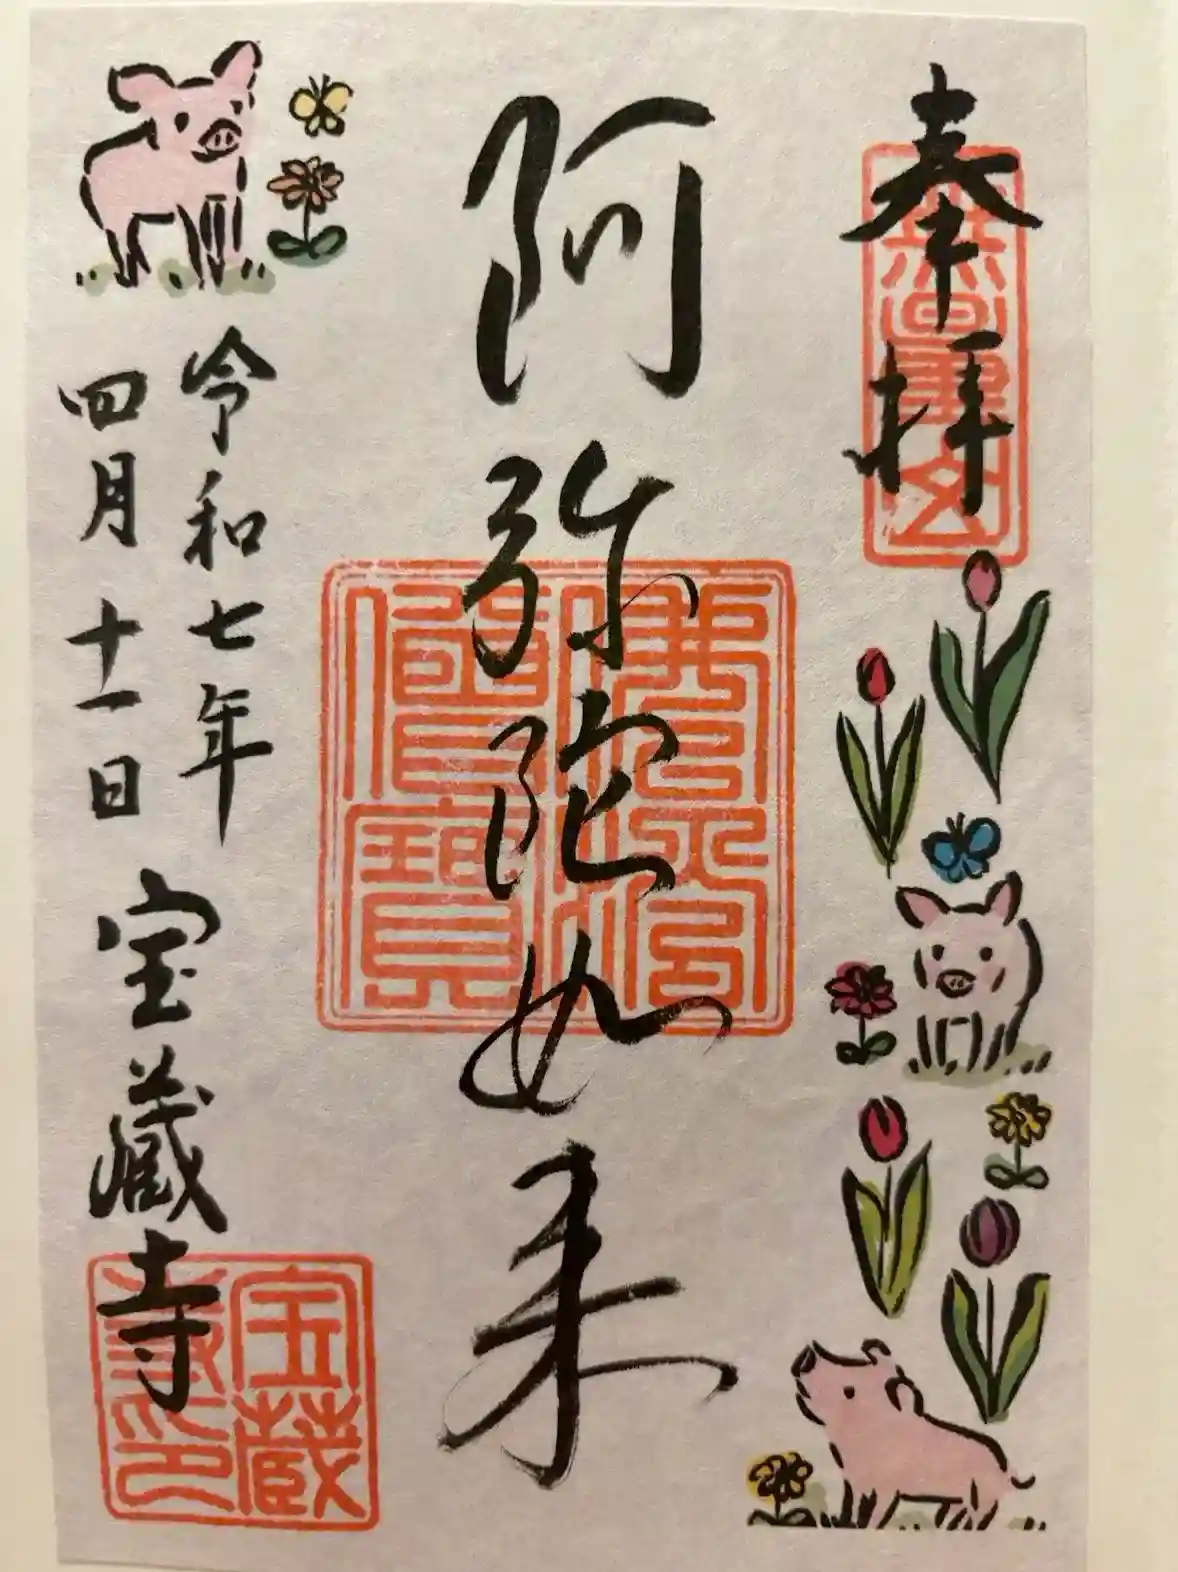 奉拝
阿弥陀如来
令和七年
四月十一日
宝蔵寺
佛法僧寶